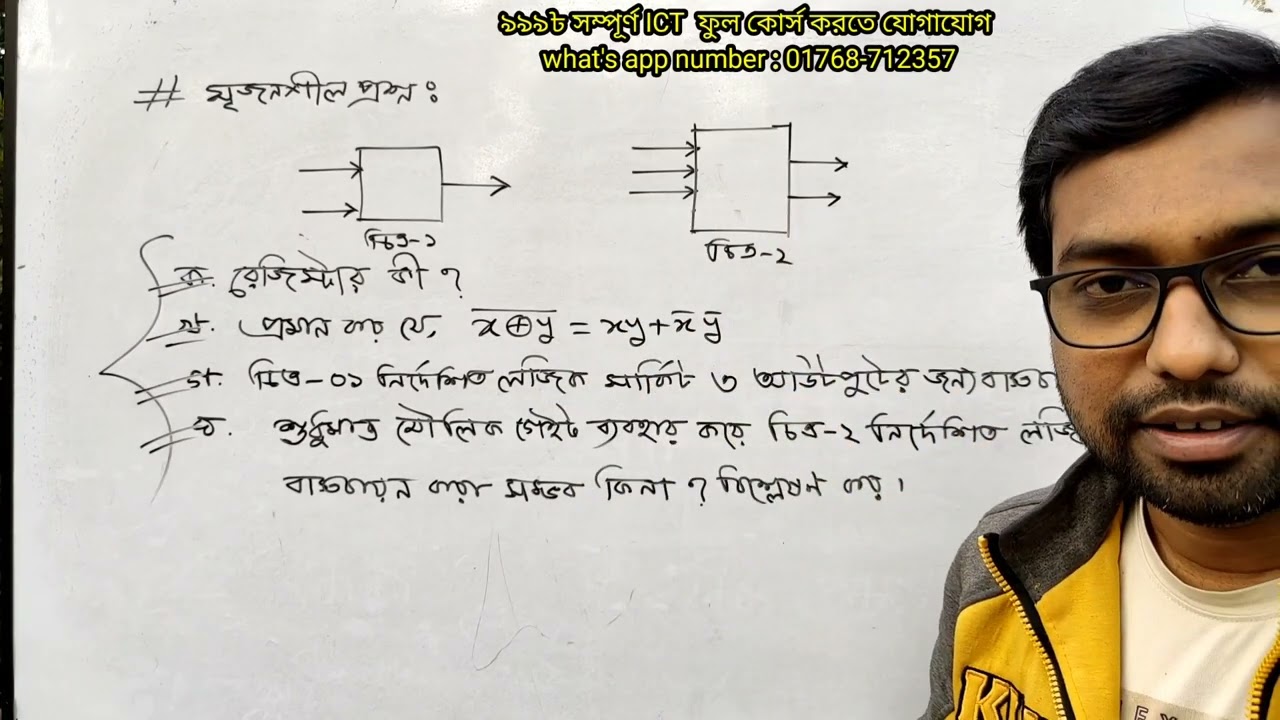 ৯৯৯৳ সম্পূর্ণ ICT ফুল কোর্স করতে যোগাযোগ
what's app number : 01768-712357
# সৃজনশীল প্রশ্ন :
চিত্র-১
চিত্র-২
ক. রেজিস্টার কী ?
খ. প্রমান কর যে, \overline{x⊕y} = xy + x̄ ȳ
গ. চিত্র-০১ নির্দেশিত লজিক সার্কিট ও আউটপুটের জন্য
ঘ. শুধুমাত্র মৌলিক গেইট ব্যবহার করে চিত্র-২ নির্দেশিত
বাস্তবায়ন করা সম্ভব কিনা ? বিশ্লেষণ কর।